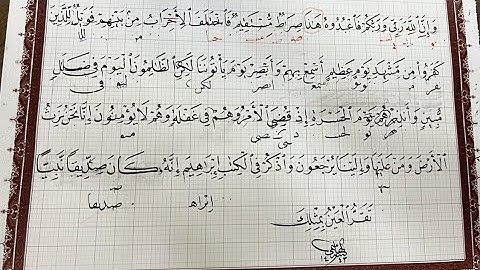 وَإِنَّ ٱللَّهَ رَبِّى وَرَبُّكُمْ فَٱعْبُدُوهُ هَٰذَا صِرَٰطٌ مُّسْتَقِيمٌ فَٱخْتَلَفَ ٱلْأَحْزَابُ مِنۢ بَيْنِهِمْ فَوَيْلٌ لِّلَّذِينَ
كَفَرُوا۟ مِن مَّشْهَدِ يَوْمٍ عَظِيمٍ أَسْمِعْ بِهِمْ وَأَبْصِرْ يَوْمَ يَأْتُونَنَا لَٰكِنِ ٱلظَّٰلِمُونَ ٱلْيَوْمَ فِى ضَلَٰلٍ
مُّبِينٍ وَأَنذِرْهُمْ يَوْمَ ٱلْحَسْرَةِ إِذْ قُضِىَ ٱلْأَمْرُ وَهُمْ فِى غَفْلَةٍ وَهُمْ لَا يُؤْمِنُونَ إِنَّا نَحْنُ نَرِثُ
ٱلْأَرْضَ وَمَنْ عَلَيْهَا وَإِلَيْنَا يُرْجَعُونَ وَٱذْكُرْ فِى ٱلْكِتَٰبِ إِبْرَٰهِيمَ إِنَّهُۥ كَانَ صِدِّيقًا نَّبِيًّا
إبراه صديقا
تقر العين بمثلك